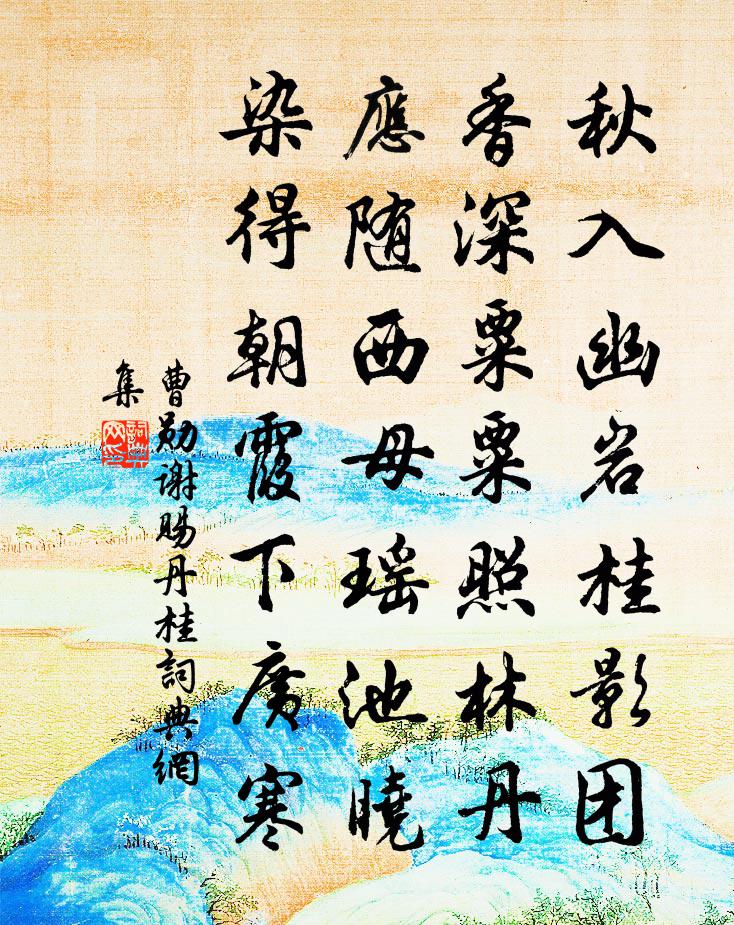 秋入幽岩桂影团
香深粟粟照林丹
應随西母瑶池曉
染得朝霞下廣寒
曹勛谢賜丹桂詞典網
集